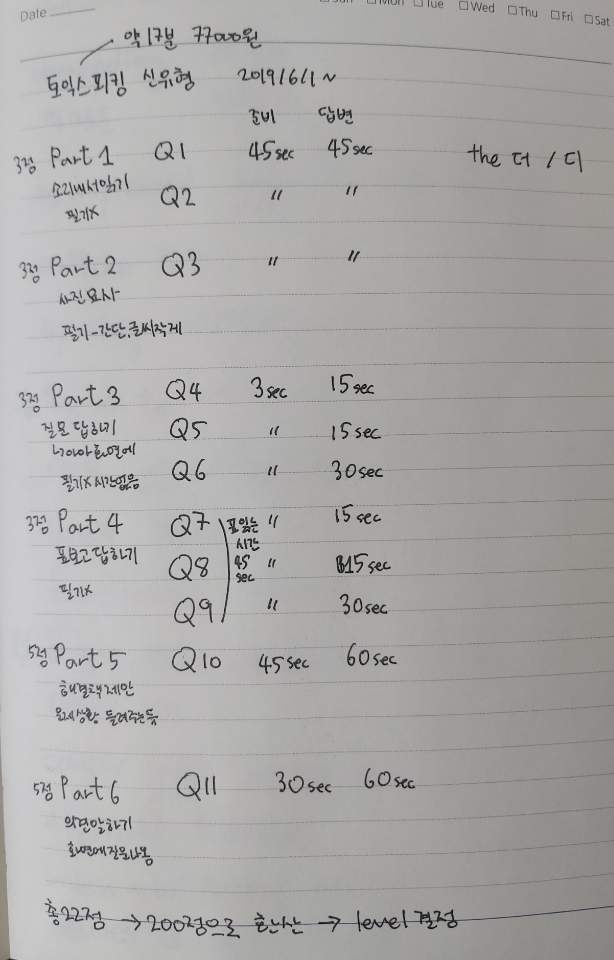 Date
Sun Mon Tue Wed Thu Fri Sat
약 17분 77000원
토익스피킹 신유형 2019/6/1 ~
준비 답변
3점 Part 1 Q1 45sec 45sec the 더 / 디
소리내서읽기 Q2 〃 〃
필기X
3점 Part 2 Q3 〃 〃
사진묘사
필기-간단,글씨작게
3점 Part 3 Q4 3sec 15sec
질문 답하기 Q5 〃 15sec
화면에 Q6 〃 30sec
필기X 시간없음
3점 Part 4 Q7 표읽는 〃 15sec
시간
표보고답하기 Q8 45 〃 15sec
sec
필기X Q9 〃 30sec
5점 Part 5 Q10 45sec 60sec
해결책제안
문제상황 들려주는듯
5점 Part 6 Q11 30sec 60sec
의견말하기
화면에질문나옴
총22점 → 200점으로 환산 → level 결정